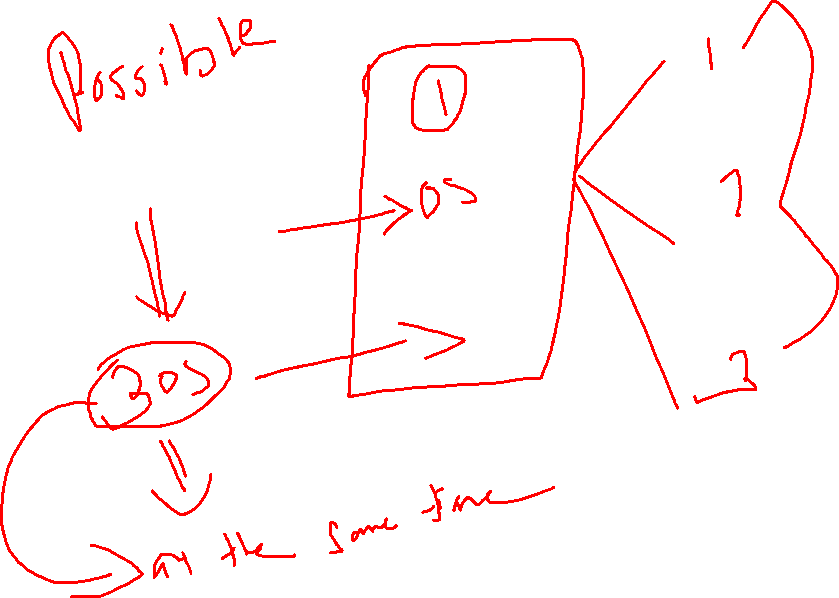 Possible
1
OS
1
2
3
3 OS
at the same time